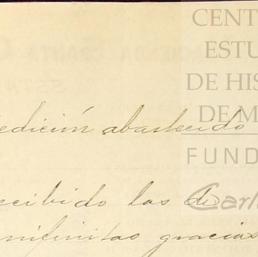 CENT
ESTU
DE HIS
DE M
FUND
Carl
edición abastecido
cibido las de
infinitas gracias